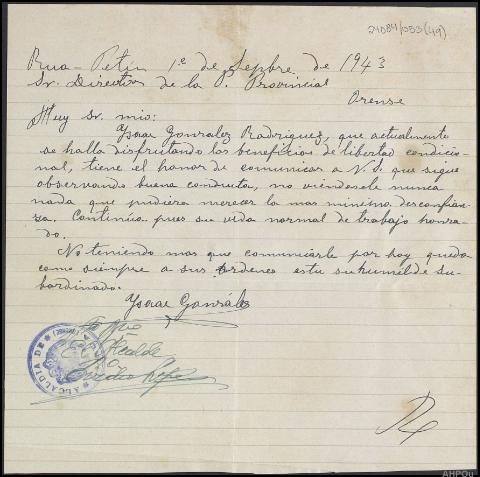 24084/053(49)
Rua-Petin 1º de Sepbre. de 1943
Sr. Director de la P. Provincial
Orense
Muy Sr. mio:
Ysaac Gonzalez Rodriguez, que actualmente
se halla disfrutando los beneficios de libertad condicio-
nal, tiene el honor de comunicar a V.S. que sigue
observando buena conducta, no viendosele nunca
nada que pudiera merecer la mas minima desconfian-
za. Continúa pues su vida normal de trabajo honra-
do.
No teniendo mas que comunicarle por hoy queda
como siempre a sus ordenes este su humilde su-
bordinado.
Ysaac Gonzáles
El Alcalde
ALCALDIA DE
AHPOu